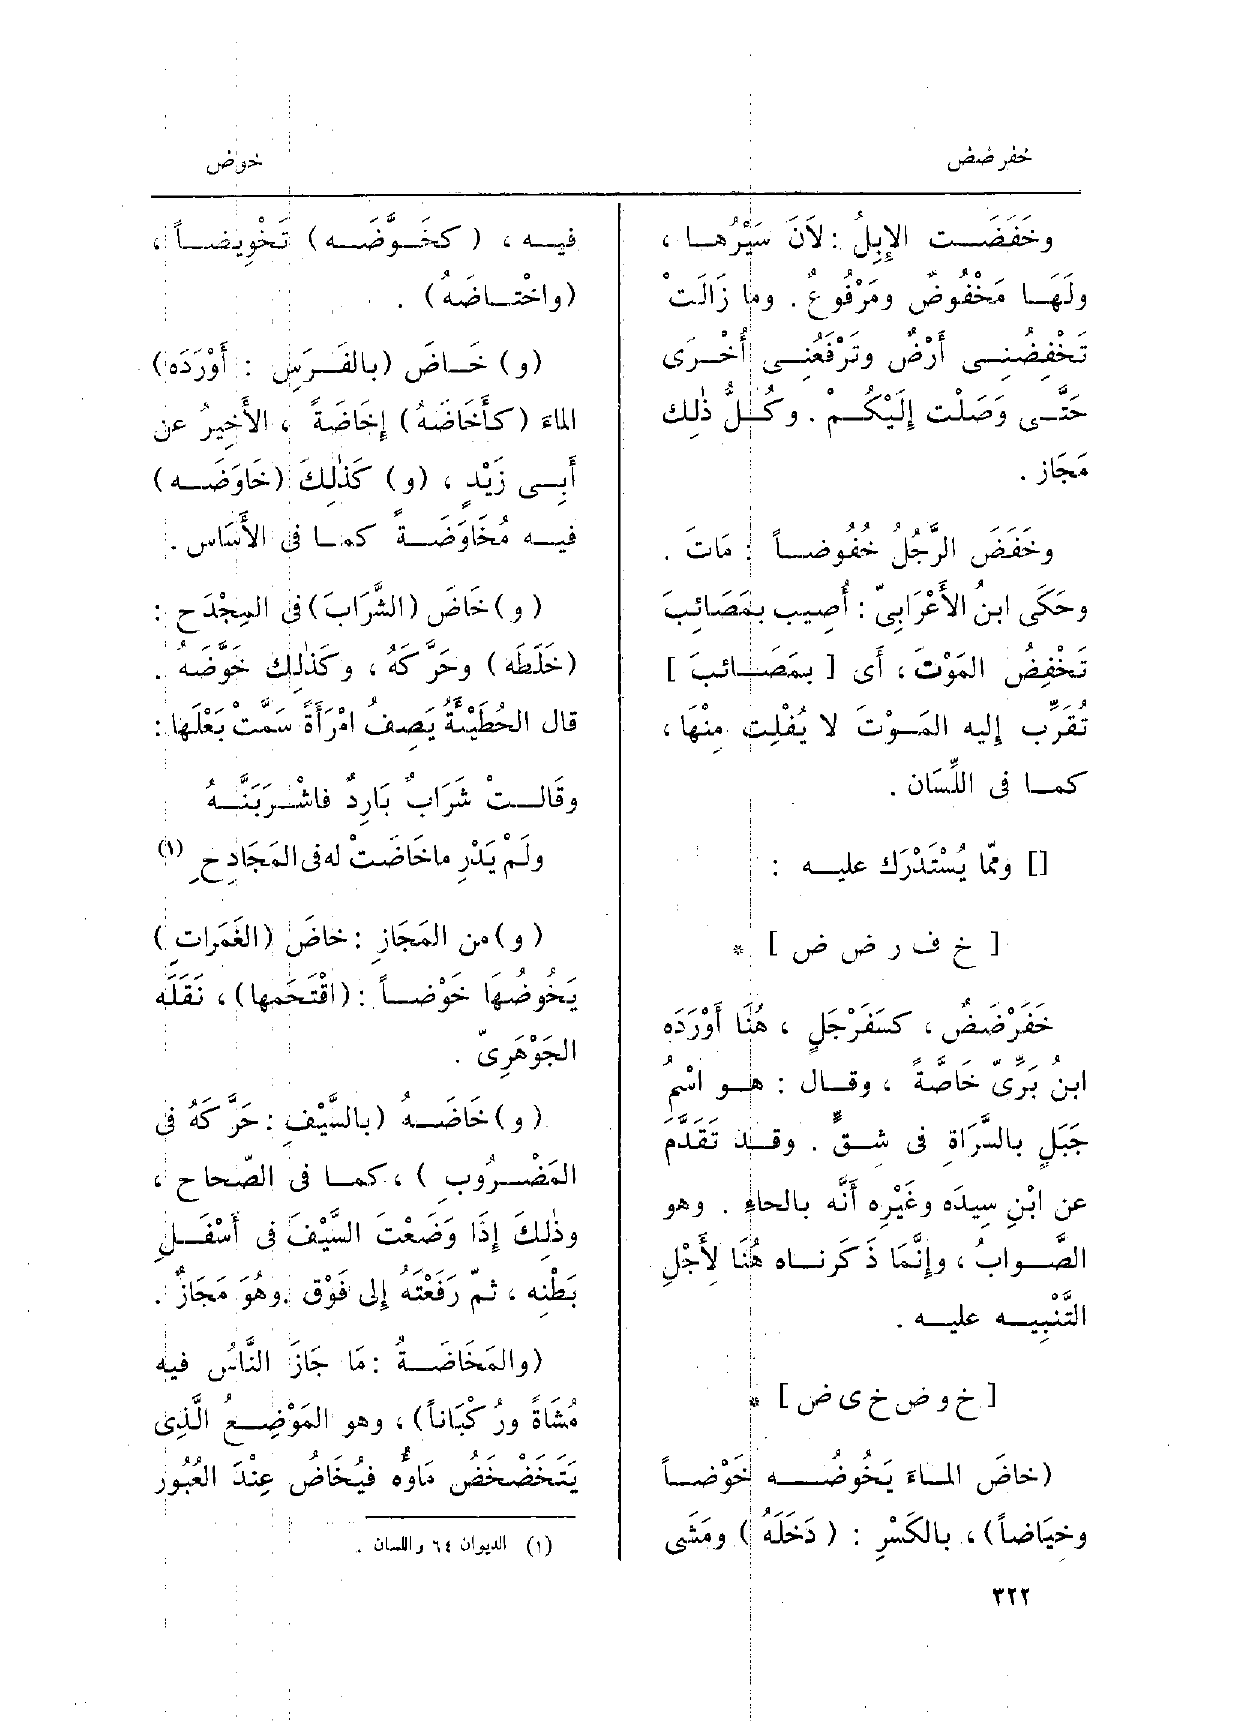 خفرضض
خوض
وخَفَضَت الإِبِلُ : لَانَ سَيْرُها ،
ولَهَا مَخْفُوضٌ ومَرْفُوعٌ . وما زَالَتْ
تَخْفِضُنِى أَرْضٌ وتَرْفَعُنِى أُخْرَى
حَتَّى وَصَلْت إِلَيْكُمْ . وكُلُّ ذٰلِك
مَجَاز .
وخَفَضَ الرَّجُلُ خُفُوضاً : مَاتَ .
وحَكَى ابنُ الأَعْرَابِىّ : أُصِيب بِمَصَائِبَ
تَخْفِضُ المَوْتَ ، أَى [ بِمَصَائبَ ]
تُقَرِّب إِليه المَوْتَ لا يُفْلِت مِنْهَا ،
كما فى اللِّسَان .
[] وممّا يُسْتَدْرَك عليه :
[ خ ف ر ض ض ] *
خَفَرْضَضٌ ، كسَفَرْجَلٍ ، هُنَا أَوْرَدَه
ابنُ بَرِّىّ خَاصَّةً ، وقال : هو اسْمُ
جَبَلٍ بالسَّرَاةِ فى شقٍّ . وقد تَقَدَّمَ
عن ابْنِ سِيدَه وغَيْرِه أَنَّه بالحاءِ . وهو
الصَّوابُ ، وإِنَّمَا ذَكرناه هُنَا لِأَجْلِ
التَّنْبِيه عليه .
[ خ و ض خ ى ض ] *
(خاضَ الماءَ يَخُوضُه خَوْضاً
وخِيَاضاً) ، بالكَسْرِ : ( دَخَلَهُ ) ومَشَى
فيه ، ( كخَوَّضَه ) تَخْوِيضاً ،
(واخْتاضَهُ) .
(و) خَاضَ (بالفَرَسِ : أَوْرَدَه)
الماءَ (كأَخَاضَهُ) إِخَاضَةً ، الأَخِيرُ عن
أَبى زَيْدٍ ، (و) كَذٰلِكَ (خَاوَضَه)
فيه مُخَاوَضَةً كما فى الأَسَاس .
( و ) خَاضَ (الشَّرَابَ) فى المِجْدَحِ :
(خَلَطَه) وحَرَّكَهُ ، وكَذٰلِك خَوَّضَهُ .
قال الحُطَيْئَةُ يَصِفُ امْرَأَةً سَمَّتْ بَعْلَها :
وقالتْ شَرَابٌ بَارِدٌ فاشْرَبَنَّهُ
ولَمْ يَدْرِ ما خَاضَتْ له فى المَجَادِحِ (١)
( و ) من المَجَازِ : خاضَ (الغَمَراتِ )
يَخُوضُها خَوْضاً : (اقْتَحَمها) ، نَقَلَه
الجَوْهَرِىّ .
( و ) خَاضَهُ (بالسَّيْفِ : حَرَّكَهُ فى
المَضْرُوبِ ) ، كما فى الصّحاح ،
وذٰلِكَ إِذَا وَضَعْتَ السَّيْفَ فى أَسْفَلِ
بَطْنِه ، ثمّ رَفَعْتَهُ إِلى فَوْق . وهُوَ مَجَازٌ .
(والمَخَاضَةُ : مَا جَازَ النَّاسُ فيه
مُشَاةً ورُكْبَاناً) ، وهو المَوْضِعُ الَّذِى
يَتَخَضْخَضُ مَاؤُه فيُخَاضُ عِنْدَ العُبُورِ
(١) الديوان ٦٤ واللسان .
٣٢٢